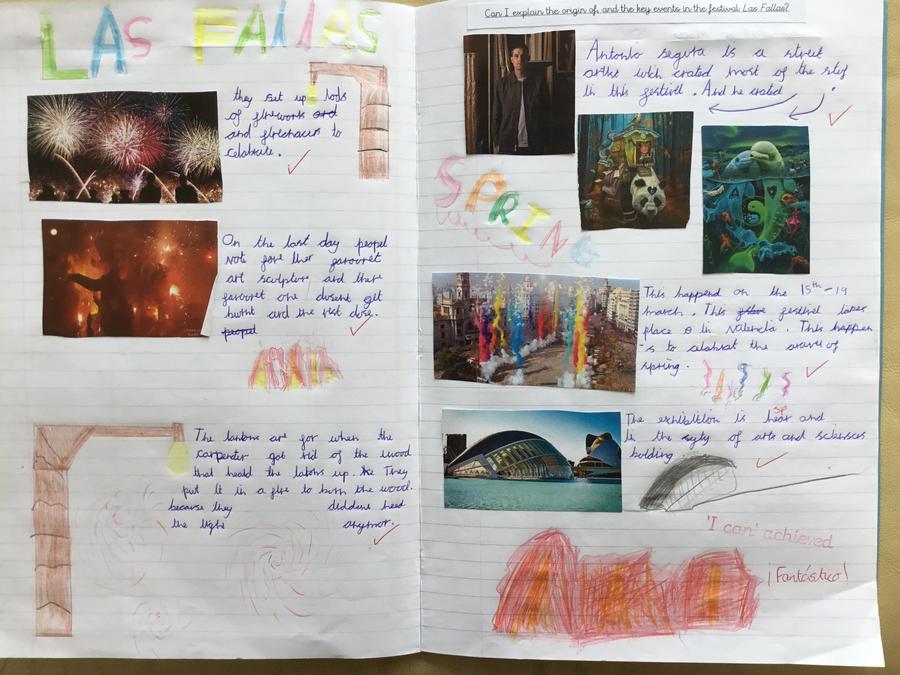 LAS FAllAS
they set up lods
of fireworks and
and firehacers to
celabrate.
On the last day peopel
vot fore ther favouret
art sculpture and there
favouret one dusent get
burnt and the rest dose.
peopel
The lantons are for when the
carpenter got rid of the wood
that heald the latons up. He They
put it in a fire to burn the wood.
because they diddent need
the light anymor.
Can I explain the origin of and the key events in the festival Las Fallas?
Antonio segura is a street
artist wich crated most of the stuf
in this festivil. And he crated
SPRING
This happend on the 15th-19
march. This festivel takes
place is in Valencia. This happen
s to celabrat the arave of
spring.
sp
The exhibition is hear and
in the syty of arts and sciensces
bolding.
'I can' achieved
¡Fantástico!